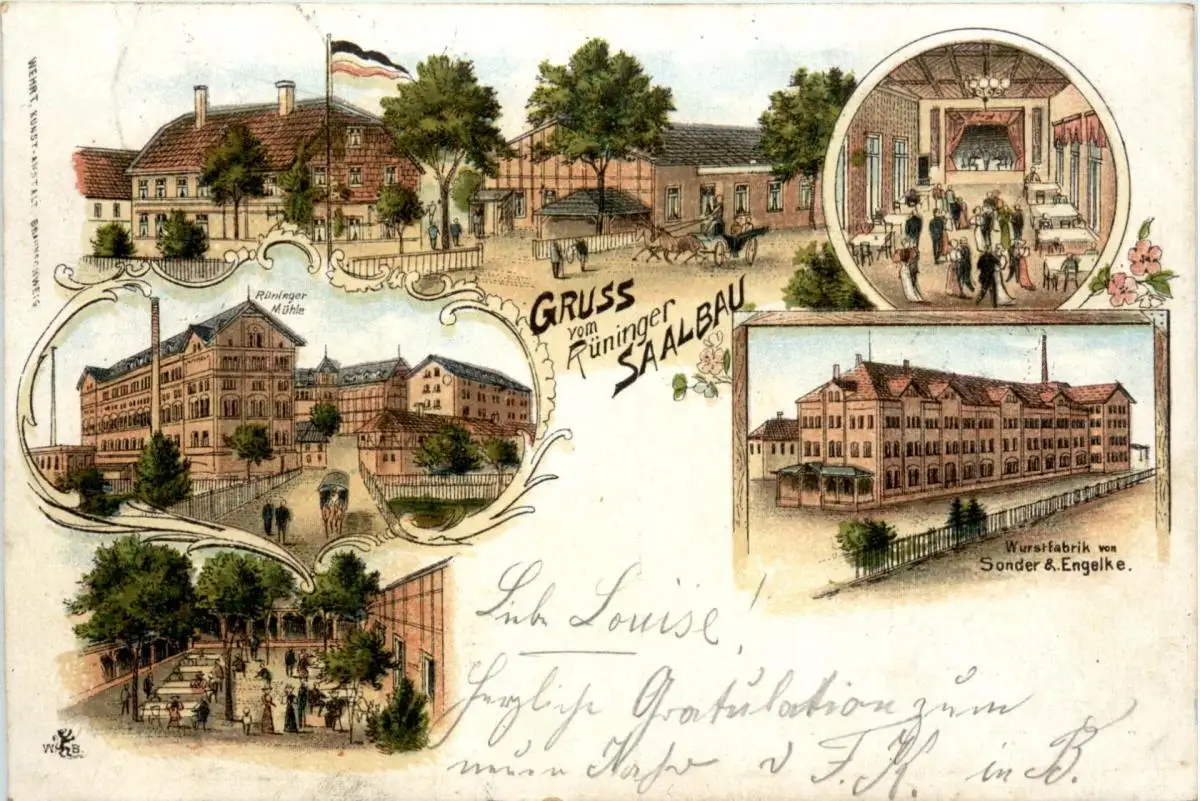 WEHRT, KUNST-ANSTALT BRAUNSCHWEIG
GRUSS
vom
Rüninger
SAALBAU
Rüninger
Mühle
Wurstfabrik von
Sonder & Engelke.
Liebe Louise!
Herzliche Gratulation zum
neuen Jahr v F. K. in B.
W B.